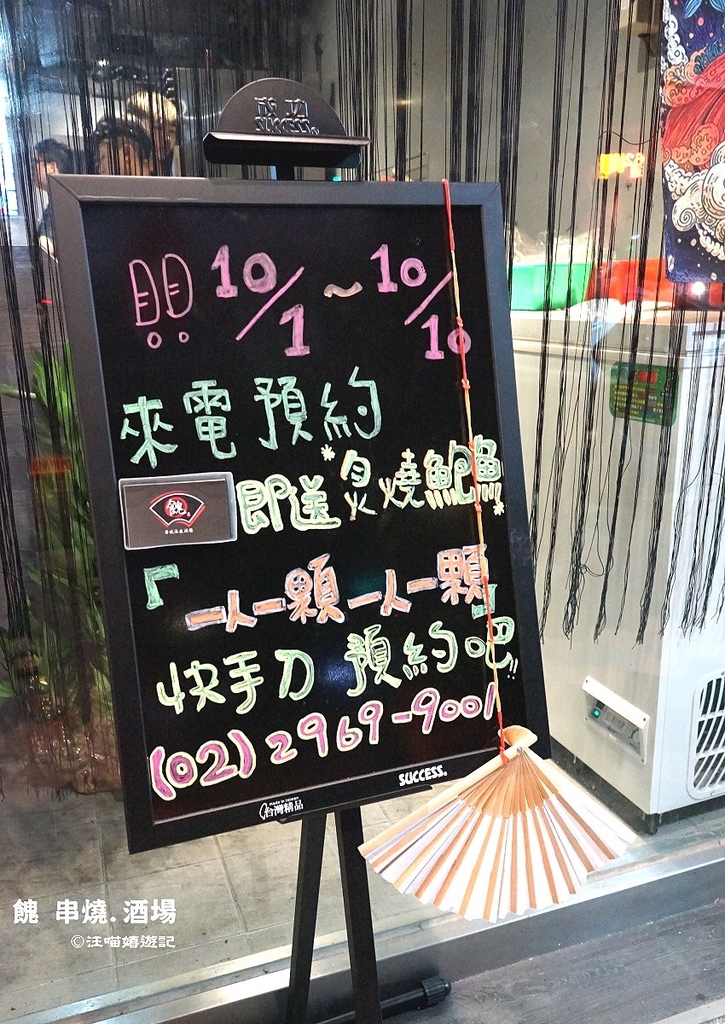 成功
SUCCESS
10/1~10/10
來電預約
即送*炙燒鮑魚*
『一人一顆 一人一顆』
快手刀 預約吧!!
(02)2969-9001
SUCCESS
made in taiwan
台灣精品
餽 串燒.酒場
©汪喵嬉遊記